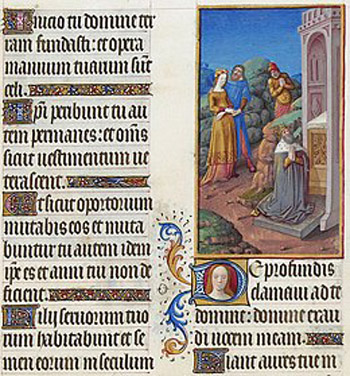 Inicio tu domine ter
ram fundasti: et opera
manuum tuarum sũt
celi.
Ipĩ peribunt tu au
tem permanes: et om̃is
sicut vestimentum ve
terascent.
Et sicut oportorium
mutabis eos et muta
buntur tu autem idem
ip̃e es et anni tui non de
ficient.
Filii servorum tuo
rum habitabunt et se
men eorum in seculum
De profundis
clamavi ad te
domine: domine exau
di vocem meam.
Fiant aures tue in